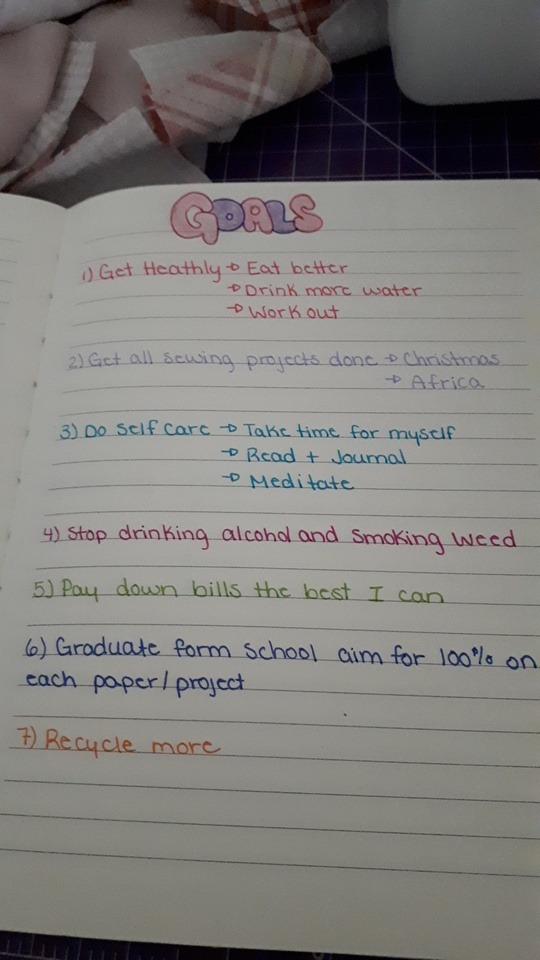 GOALS
1) Get Heathly → Eat better
→ Drink more water
→ Work out
2) Get all sewing projects done → Christmas
→ Africa
3) Do Self Care → Take time for myself
→ Read + Journal
→ Meditate
4) Stop drinking alcohol and smoking weed
5) Pay down bills the best I can
6) Graduate form school aim for 100% on
each paper/project
7) Recycle more